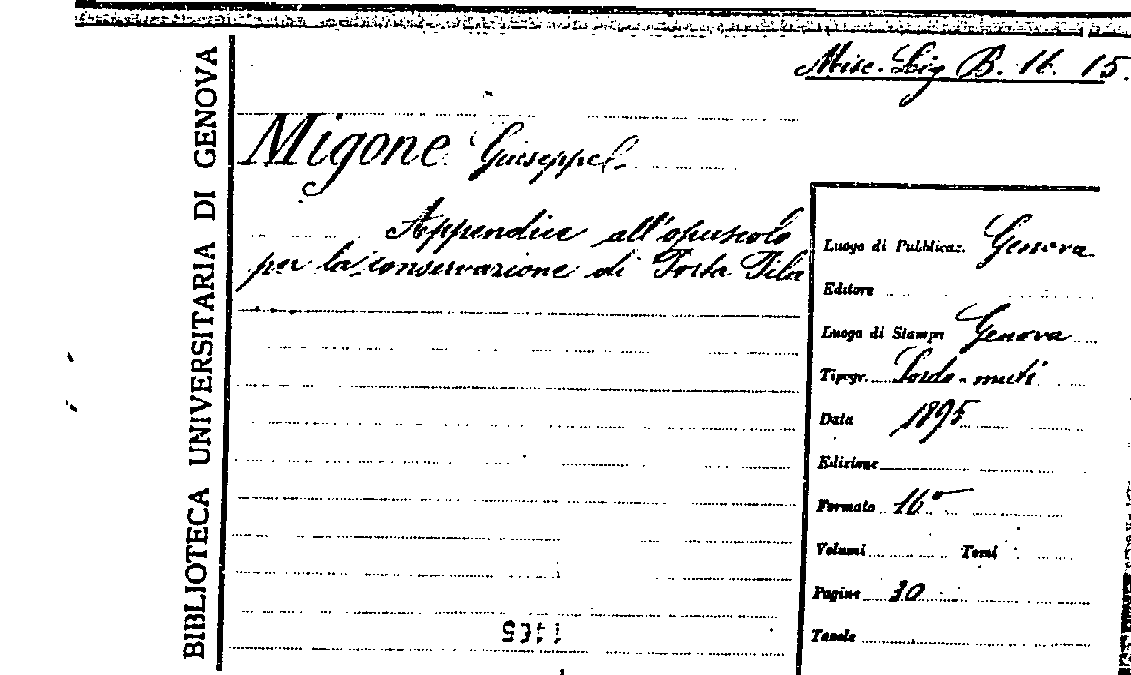 BIBLIOTECA UNIVERSITARIA DI GENOVA
Misc. Lig B. 16. 15.
Migone Giuseppe
Appendice all'opuscolo
per la conservazione di Porta Pila
Luogo di Pubblicaz. Genova
Editore
Luogo di Stampa Genova
Tipogr. Sordo-muti
Data 1895
Edizione
Formato 16°
Volumi Tomi
Pagine 30
Tavole